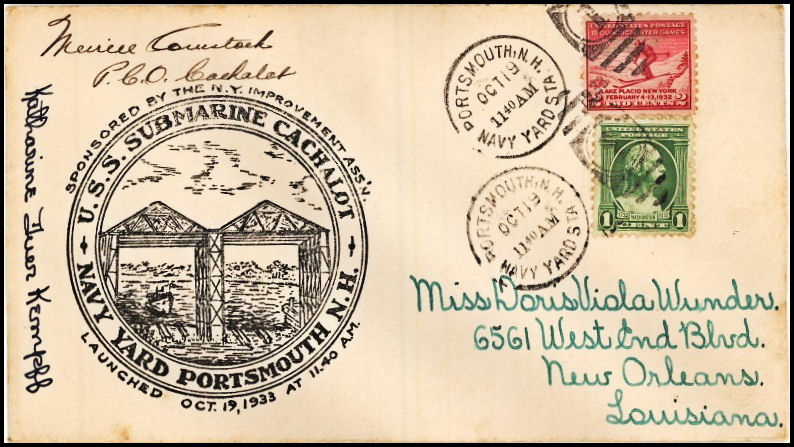 Merrill Comstock
P.C.O. Cachalot
Katharine Kempff
SPONSORED BY THE N.Y. IMPROVEMENT ASS'N.
U.S.S. SUBMARINE CACHALOT
NAVY YARD PORTSMOUTH N.H.
LAUNCHED OCT. 19, 1933 AT 11.40 A.M.
PORTSMOUTH, N.H.
OCT 19
1140 AM
NAVY YARD STA.
PORTSMOUTH, N.H.
OCT 19
1140 AM
NAVY YARD STA.
UNITED STATES POSTAGE
III OLYMPIC WINTER GAMES
LAKE PLACID NEW YORK
FEBRUARY 4-13, 1932
2 TWO CENTS 2
UNITED STATES
POSTAGE
1732 WASHINGTON 1932
1 CENT 1
Miss Doris Viola Wunder.
6561 West End Blvd.
New Orleans.
Louisiana.